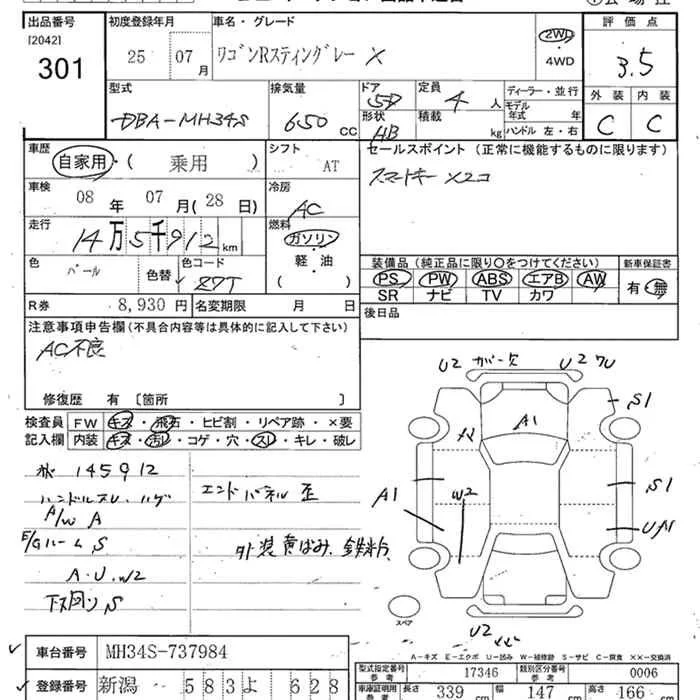 出品番号 初度登録年月 車名・グレード 評価点
[2042]
301 25 07月 ワゴンRスティングレー X 2WD ・ 4WD 3.5
型式 排気量 ドア 5D 定員 4人 ディーラー・並行 外装 内装
DBA-MH34S 650 CC 形状 HB 積載 kg モデル年式 年 ハンドル 左・右 C C
車歴 シフト セールスポイント (正常に機能するものに限ります)
自家用・( 乗用 ) AT スマートキー×2コ
車検 08年 07月(28日) 冷房 AC
走行 14万5千912km 燃料 ガソリン・軽・油 ( )
色 パール 色替 色コード Z7T
装備品 (純正品に限り〇をつけてください) 新車保証書
PS PW ABS エアB AW 有・無
SR ナビ TV カワ
R券 8,930円 名変期限 月 日 後日品
注意事項申告欄(不具合内容等は具体的に記入して下さい)
AC不良
修復歴 有 〔箇所 〕
検査員 FW キズ・飛石・ヒビ割・リペア跡・×要
記入欄 内装 キズ・汚れ・コゲ・穴・スレ・キレ・破レ
145912
ハンドルスレ、ハゲ
A/W A
E/Gルーム S
A.U.W2
下廻り S
エンドパネル 歪
外装黄ばみ、鉄粉
U2 ガ-欠 U2
A1
S1
A1 W2 S1
U2
スペア
A-キズ E-エクボ U-凹み W-補修跡 S-サビ C-腐食 ××-交換済
車台番号 MH34S-737984
登録番号 新潟 583 よ 628
型式指定番号 参考 17346 類別区分番号 参考 0006
車庫証明用 参考 長さ 339cm 幅 147cm 高さ 166cm